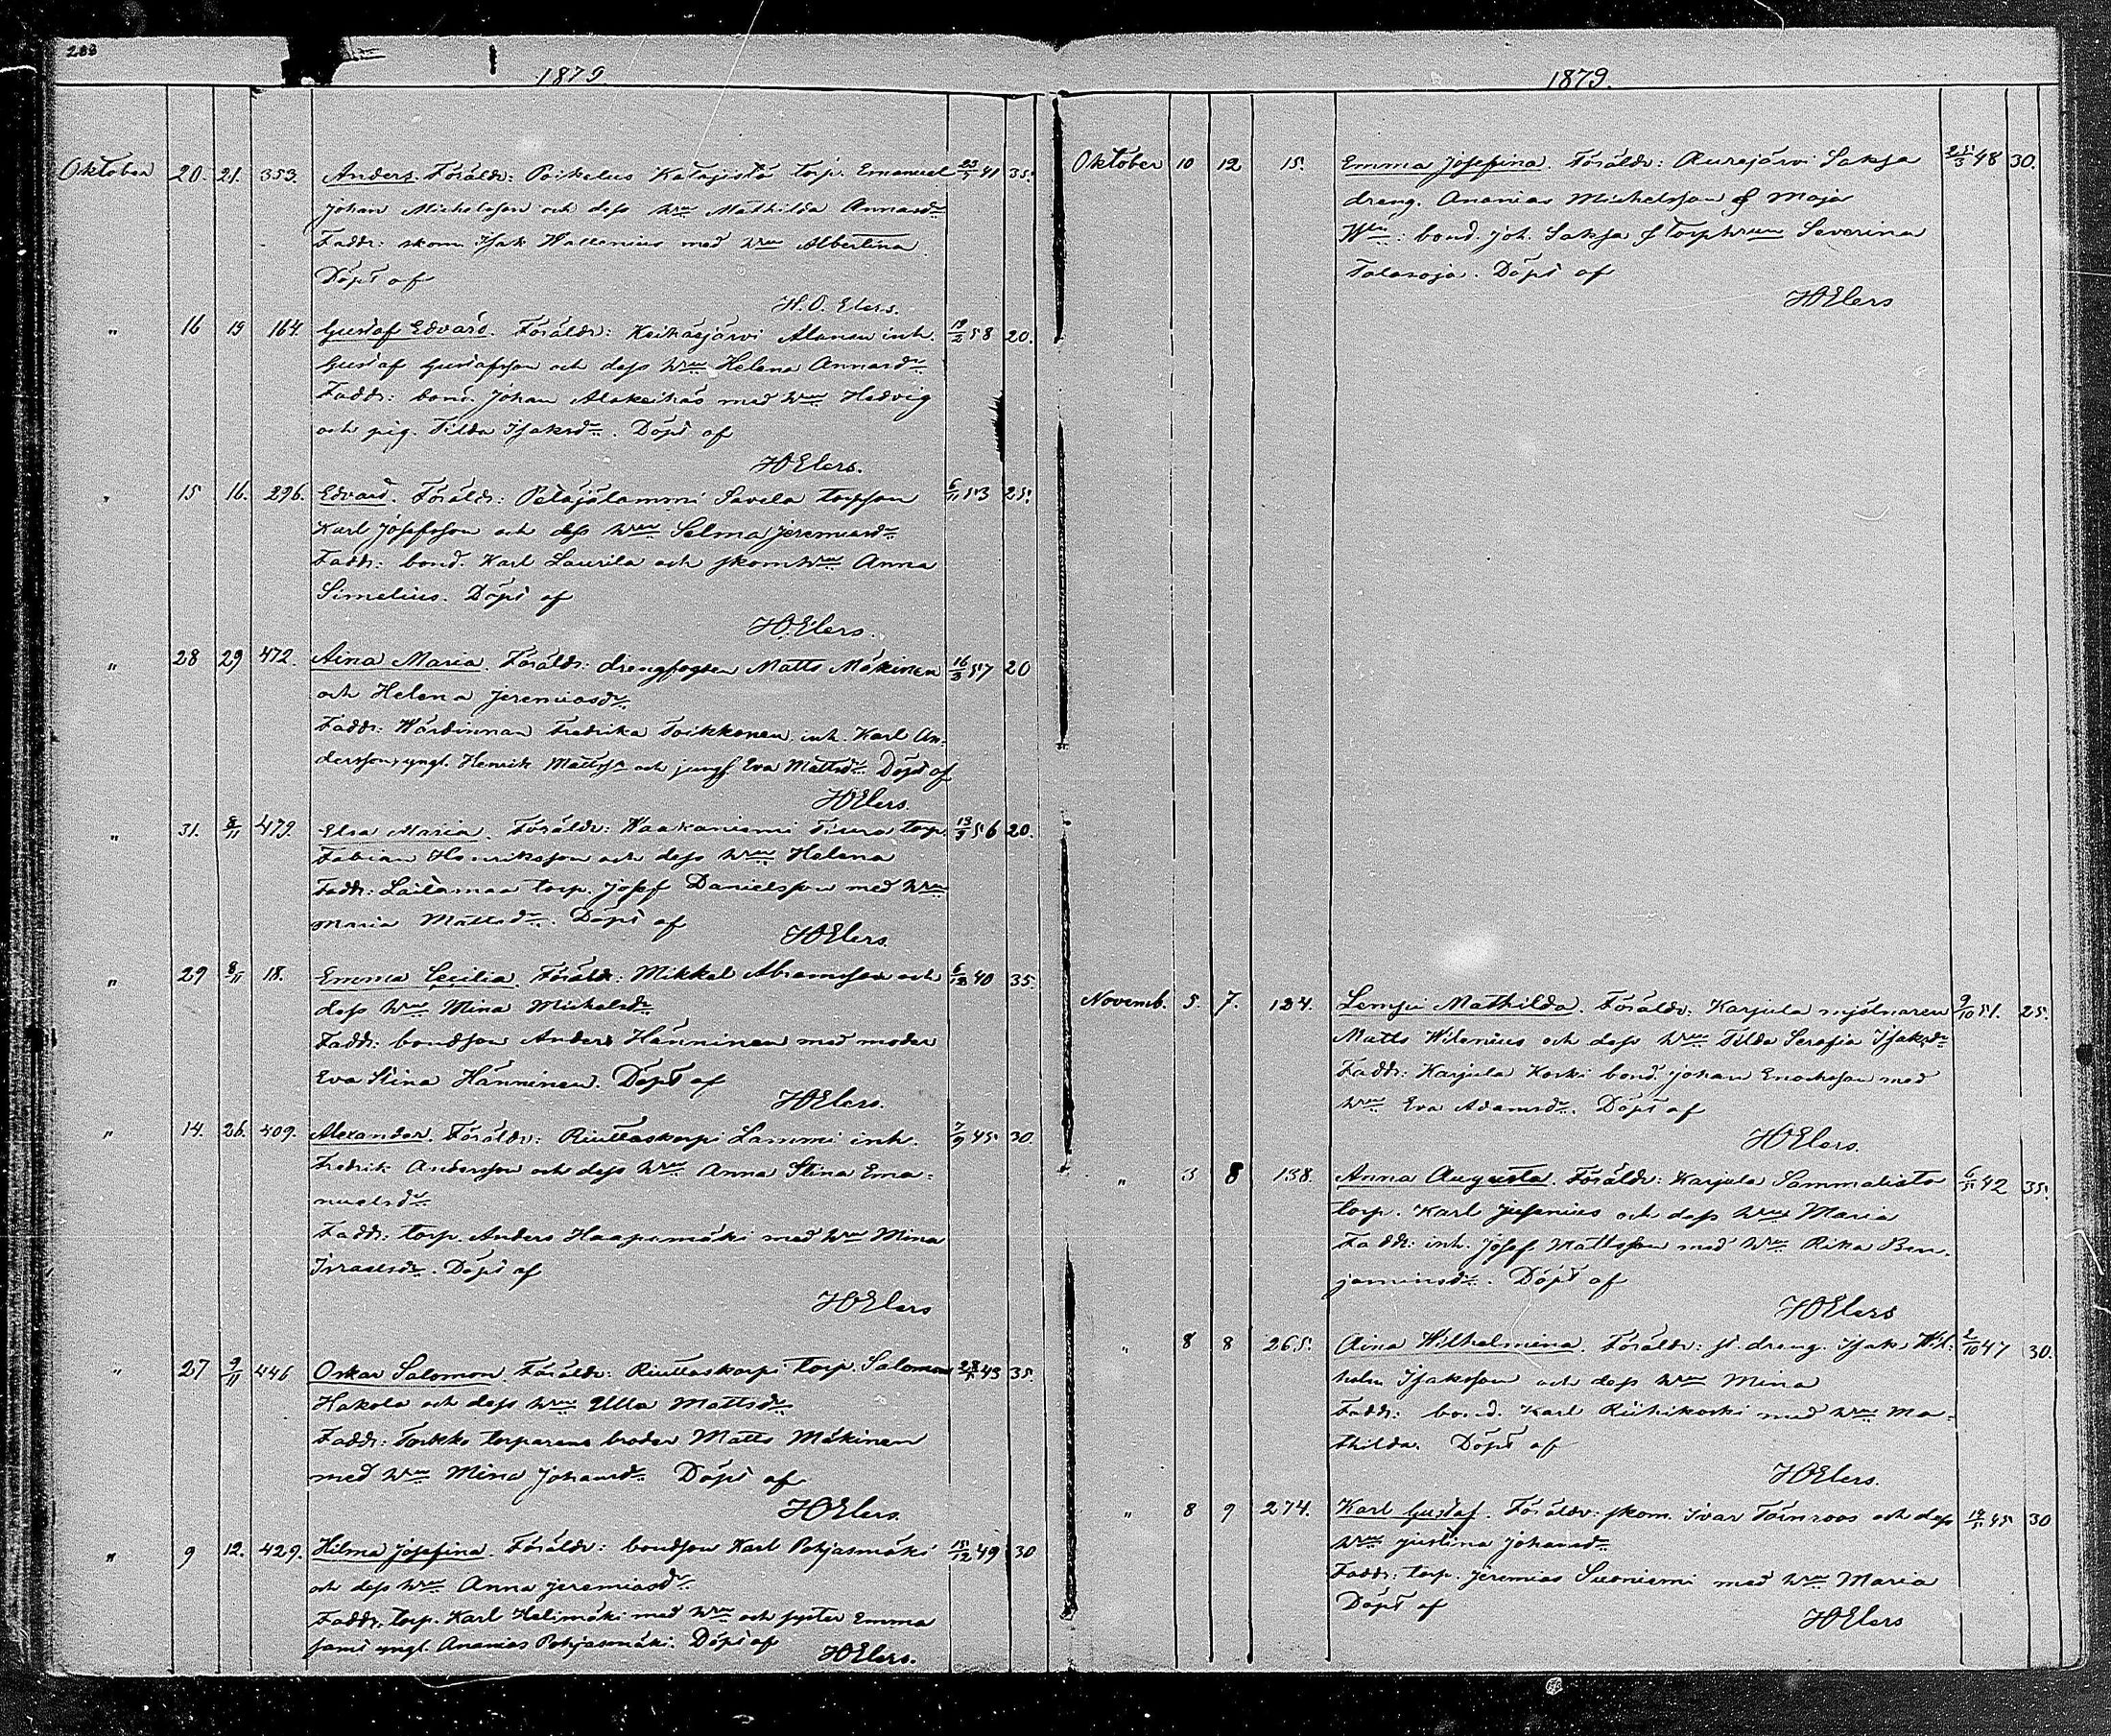 1879
Oktober 20. 21. 353. Anders. Föräldr: Poikelus Katajisto torp. Emanuel 23/5 41 35.
Johan Michelsson och dess hru Mathilda Annasdr
Faddr: skom. Isak Wallenius med hru Albertina
Döpt af
H. O. Elers.
" 16 19 164. Gustaf Edvard. Föräldr: Keihäsjärvi Alanen inh. 19/2 58 20.
Gustaf Gustafsson och dess hru Helena Annasdr
Faddr: bond. Johan Alakeihäs med hru Hedvig
och pig. Tilda Isaksdr. Döpt af
HOElers.
" 15 16. 296. Edvard. Föräldr: Petäjälammi Savela torpson 6/11 53 25.
Karl Josefsson och dess hru Selma Jeremiasdr
Faddr: bond. Karl Laurila och skomhru Anna
Simelius. Döpt af
HOElers.
" 28 29 472. Aina Maria. Föräldr: drengfogden Matts Mäkinen 16/3 57 20
och Helena Jeremiasdr.
Faddr: Wärdinnan Fredrika Toikkonen, inh. Karl An-
dersson, yngl. Henrik Mattss. och jungf. Eva Mattsdr. Döpt af
HOElers.
" 31. 8/11 479. Elsa Maria. Föräldr: Waakaniemi Tiura torp. 13/9 56 20.
Fabian Henriksson och dess hru Helena
Faddr: Lailamaa torp. Josef Danielsson med hru
Maria Mattsdr. Döpt af
HOElers.
" 29 8/11 18. Emma Cecilia. Föräldr: Mikkel Abramsson och 6/12 40 35.
dess hru Mina Michelsdr
Faddr: bondson Anders Hänninen med moder
Eva Stina Hänninen. Döpt af
HOElers.
" 14. 26. 409. Alexander. Föräldr: Riuttaskorpi Lammi inh. 7/9 45 30.
Fredrik Andersson och dess hru Anna Stina Ema-
nuelsdr.
Faddr: torp. Anders Haapamäki med hru Mina
Israelsdr. Döpt af
HOElers
" 27 9/11 446 Oskar Salomon. Föräldr: Riuttaskorpi torp. Salomon 28/5 43 35.
Hakola och dess hru Ulla Mattsdr
Faddr: Torkko torparens broder Matts Mäkinen
med hru Mina Johansdr. Döpt af
HOElers.
" 9 12. 429. Hilma Josefina. Föräldr: bondson Karl Pohjasmäki 15/12 49 30
och dess hru Anna Jeremiasdr.
Faddr. torp. Karl Helimäki med hru och syster Emma
samt yngl. Ananias Pohjasmäki. Döpt af
HOElers.
1879.
Oktober 10 12 15. Emma Josefina. Föräldr: Aurejärvi Sakja 25/3 48 30.
dreng. Ananias Michelsson & Maja
Wtn: bond. Joh. Sakja & torphrun Severina
Talasoja. Döpt af
HOElers
Novemb. 5. 7. 124. Lempi Mathilda. Föräldr: Karjula mjölnaren 9/10 51. 25.
Matts Wilenius och dess hru Tilda Serafia Isaksdr
Faddr: Karjula Koski bond. Johan Enochsson med
hru Eva Adamsdr. Döpt af
HOElers.
" 3 8 138. Anna Augusta. Föräldr: Karjula Sammalisto 6/5 42 35.
torp. Karl Jusenius och dess hru Maria
Faddr: inh. Josef Mattsson med hru Rika Ben-
jaminsdr. Döpt af
HOElers
" 8 8 265. Aina Wilhelmina. Föräldr: st. dreng. Isak Wil- 2/10 47 30.
helm Isaksson och dess hru Mina
Faddr: bond. Karl Riihikoski med hru Ma-
thilda. Döpt af
HOElers.
" 8 9 274. Karl Gustaf. Föräldr: skom. Ivar Törnroos och dess 14/5 45 30
hru Justina Johansdr
Faddr: torp. Jeremias Suoniemi med hru Maria
Döpt af
HOElers